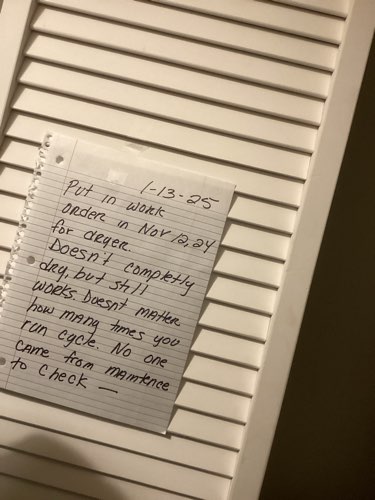 1-13-25
Put in work
order in Nov 12, 24
for dryer.
Doesn't completly
dry, but still
works. Doesn't matter
how many times you
run cycle. No one
came from maintence
to check —